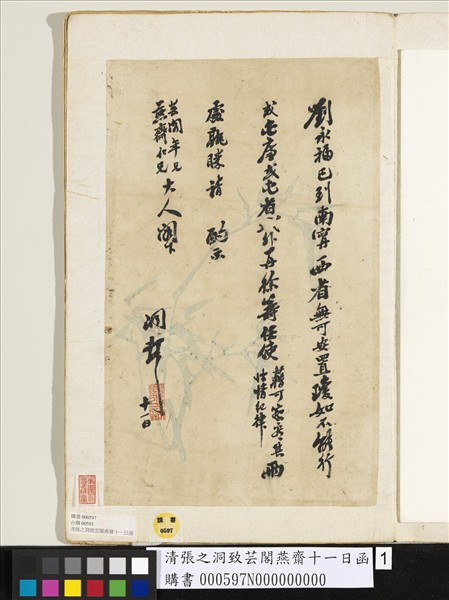 劉永福已到南寧西省無可安置瓊如不能行
或屯廉或屯省以外再徐籌任使
藉可察其
性情紀律
兩
處孰勝請 酌示
芸閣年兄
燕齋仁兄
大人閣下
洞頓
十一日
購書 000597
清張之洞致芸閣燕齋十一日函
購書
0597
清張之洞致芸閣燕齋十一日函 1
購書 000597N000000000